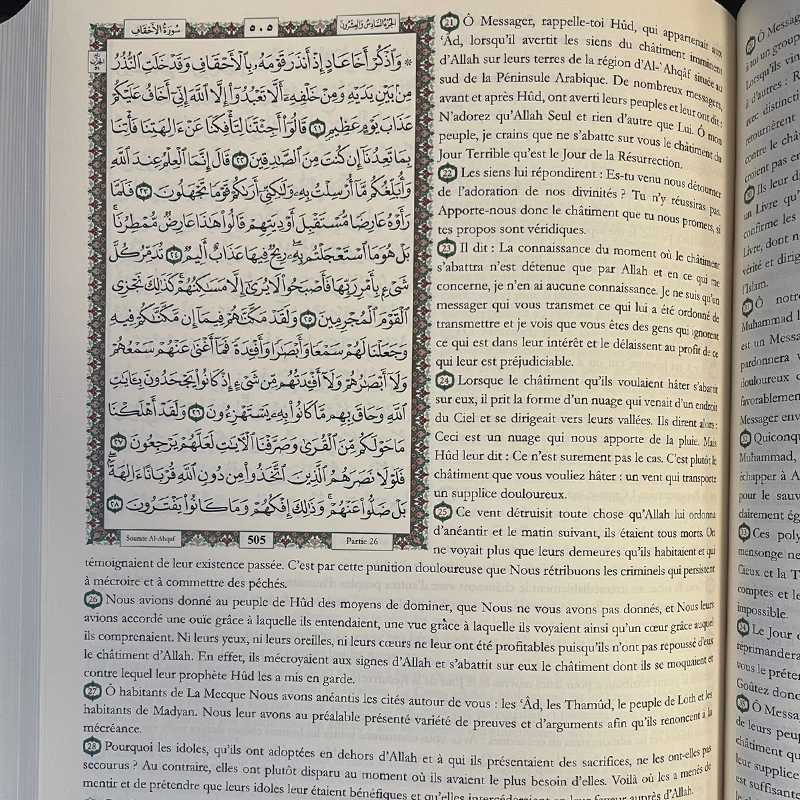 سُورَةُ الأَحْقَافِ
٥٠٥
الجُزْءُ السَّادِسُ وَالعِشْرُونَ
۞ وَٱذْكُرْ أَخَا عَادٍ إِذْ أَنذَرَ قَوْمَهُۥ بِٱلْأَحْقَافِ وَقَدْ خَلَتِ ٱلنُّذُرُ
مِنۢ بَيْنِ يَدَيْهِ وَمِنْ خَلْفِهِۦٓ أَلَّا تَعْبُدُوٓا۟ إِلَّا ٱللَّهَ إِنِّىٓ أَخَافُ عَلَيْكُمْ
عَذَابَ يَوْمٍ عَظِيمٍ ٢١ قَالُوٓا۟ أَجِئْتَنَا لِتَأْفِكَنَا عَنْ ءَالِهَتِنَا فَأْتِنَا
بِمَا تَعِدُنَآ إِن كُنتَ مِنَ ٱلصَّٰدِقِينَ ٢٢ قَالَ إِنَّمَا ٱلْعِلْمُ عِندَ ٱللَّهِ
وَأُبَلِّغُكُم مَّآ أُرْسِلْتُ بِهِۦ وَلَٰكِنِّىٓ أَرَىٰكُمْ قَوْمًا تَجْهَلُونَ ٢٣ فَلَمَّا
رَأَوْهُ عَارِضًا مُّسْتَقْبِلَ أَوْدِيَتِهِمْ قَالُوا۟ هَٰذَا عَارِضٌ مُّمْطِرُنَا ۚ
بَلْ هُوَ مَا ٱسْتَعْجَلْتُم بِهِۦ ۖ رِيحٌ فِيهَا عَذَابٌ أَلِيمٌ ٢٤ تُدَمِّرُ كُلَّ
شَىْءٍۭ بِأَمْرِ رَبِّهَا فَأَصْبَحُوا۟ لَا يُرَىٰٓ إِلَّا مَسَٰكِنُهُمْ ۚ كَذَٰلِكَ نَجْزِى
ٱلْقَوْمَ ٱلْمُجْرِمِينَ ٢٥ وَلَقَدْ مَكَّنَّٰهُمْ فِيمَآ إِن مَّكَّنَّٰكُمْ فِيهِ
وَجَعَلْنَا لَهُمْ سَمْعًا وَأَبْصَٰرًا وَأَفْـِٔدَةً فَمَآ أَغْنَىٰ عَنْهُمْ سَمْعُهُمْ
وَلَآ أَبْصَٰرُهُمْ وَلَآ أَفْـِٔدَتُهُم مِّن شَىْءٍ إِذْ كَانُوا۟ يَجْحَدُونَ بِـَٔايَٰتِ
ٱللَّهِ وَحَاقَ بِهِم مَّا كَانُوا۟ بِهِۦ يَسْتَهْزِءُونَ ٢٦ وَلَقَدْ أَهْلَكْنَا
مَا حَوْلَكُم مِّنَ ٱلْقُرَىٰ وَصَرَّفْنَا ٱلْءَايَٰتِ لَعَلَّهُمْ يَرْجِعُونَ ٢٧
فَلَوْلَا نَصَرَهُمُ ٱلَّذِينَ ٱتَّخَذُوا۟ مِن دُونِ ٱللَّهِ قُرْبَانًا ءَالِهَةَۢ ۖ
بَلْ ضَلُّوا۟ عَنْهُمْ ۚ وَذَٰلِكَ إِفْكُهُمْ وَمَا كَانُوا۟ يَفْتَرُونَ ٢٨
Sourate Al-Ahqaf
505
Partie 26
21 Ô Messager, rappelle-toi Hûd, qui appartenait aux
'Âd, lorsqu'il avertit les siens du châtiment imminent
d'Allah sur leurs terres de la région d'Al-'Ahqâf située au
sud de la Péninsule Arabique. De nombreux messagers,
avant et après Hûd, ont averti leurs peuples et leur ont dit :
N'adorez qu'Allah Seul et rien d'autre que Lui. Ô mon
peuple, je crains que ne s'abatte sur vous le châtiment du
Jour Terrible qu'est le Jour de la Résurrection.
22 Les siens lui répondirent : Es-tu venu nous détourner
de l'adoration de nos divinités ? Tu n'y réussiras pas.
Apporte-nous donc le châtiment que tu nous promets, si
tes propos sont véridiques.
23 Il dit : La connaissance du moment où le châtiment
s'abattra n'est détenue que par Allah et en ce qui me
concerne, je n'en ai aucune connaissance. Je ne suis qu'un
messager qui vous transmet ce qui lui a été ordonné de
transmettre et je vois que vous êtes des gens qui ignorent
ce qui est dans leur intérêt et le délaissent au profit de ce
qui leur est préjudiciable.
24 Lorsque le châtiment qu'ils voulaient hâter s'abattit
sur eux, il prit la forme d'un nuage qui venait d'un endroit
du Ciel et se dirigeait vers leurs vallées. Ils dirent alors :
Ceci est un nuage qui nous apporte de la pluie. Mais
Hûd leur dit : Ce n'est surement pas le cas. C'est plutôt le
châtiment que vous vouliez hâter : un vent qui transporte
un supplice douloureux.
25 Ce vent détruisit toute chose qu'Allah lui ordonna
d'anéantir et le matin suivant, ils étaient tous morts. On
ne voyait plus que leurs demeures qu'ils habitaient et qui
témoignaient de leur existence passée. C'est par cette punition douloureuse que Nous rétribuons les criminels qui persistent
à mécroire et à commettre des péchés.
26 Nous avions donné au peuple de Hûd des moyens de dominer, que Nous ne vous avons pas donnés, et Nous leurs
avions accordé une ouïe grâce à laquelle ils entendaient, une vue grâce à laquelle ils voyaient ainsi qu'un cœur grâce auquel
ils comprenaient. Ni leurs yeux, ni leurs oreilles, ni leurs cœurs ne leur ont été profitables puisqu'ils n'ont pas repoussé d'eux
le châtiment d'Allah. En effet, ils mécroyaient aux signes d'Allah et s'abattit sur eux le châtiment dont ils se moquaient et
contre lequel leur prophète Hûd les a mis en garde.
27 Ô habitants de La Mecque Nous avons anéantis les cités autour de vous : les 'Âd, les Thamûd, le peuple de Loth et les
habitants de Madyan. Nous leur avons au préalable présenté variété de preuves et d'arguments afin qu'ils renoncent à la
mécréance.
28 Pourquoi les idoles, qu'ils ont adoptées en dehors d'Allah et à qui ils présentaient des sacrifices, ne les ont-elles pas
secourus ? Au contraire, elles ont plutôt disparu au moment où ils avaient le plus besoin d'elles. Voilà où les a menés de
mentir et de prétendre que leurs idoles leur étaient bénéfiques et qu'elles intercéderaient en leur faveur auprès d'Allah.